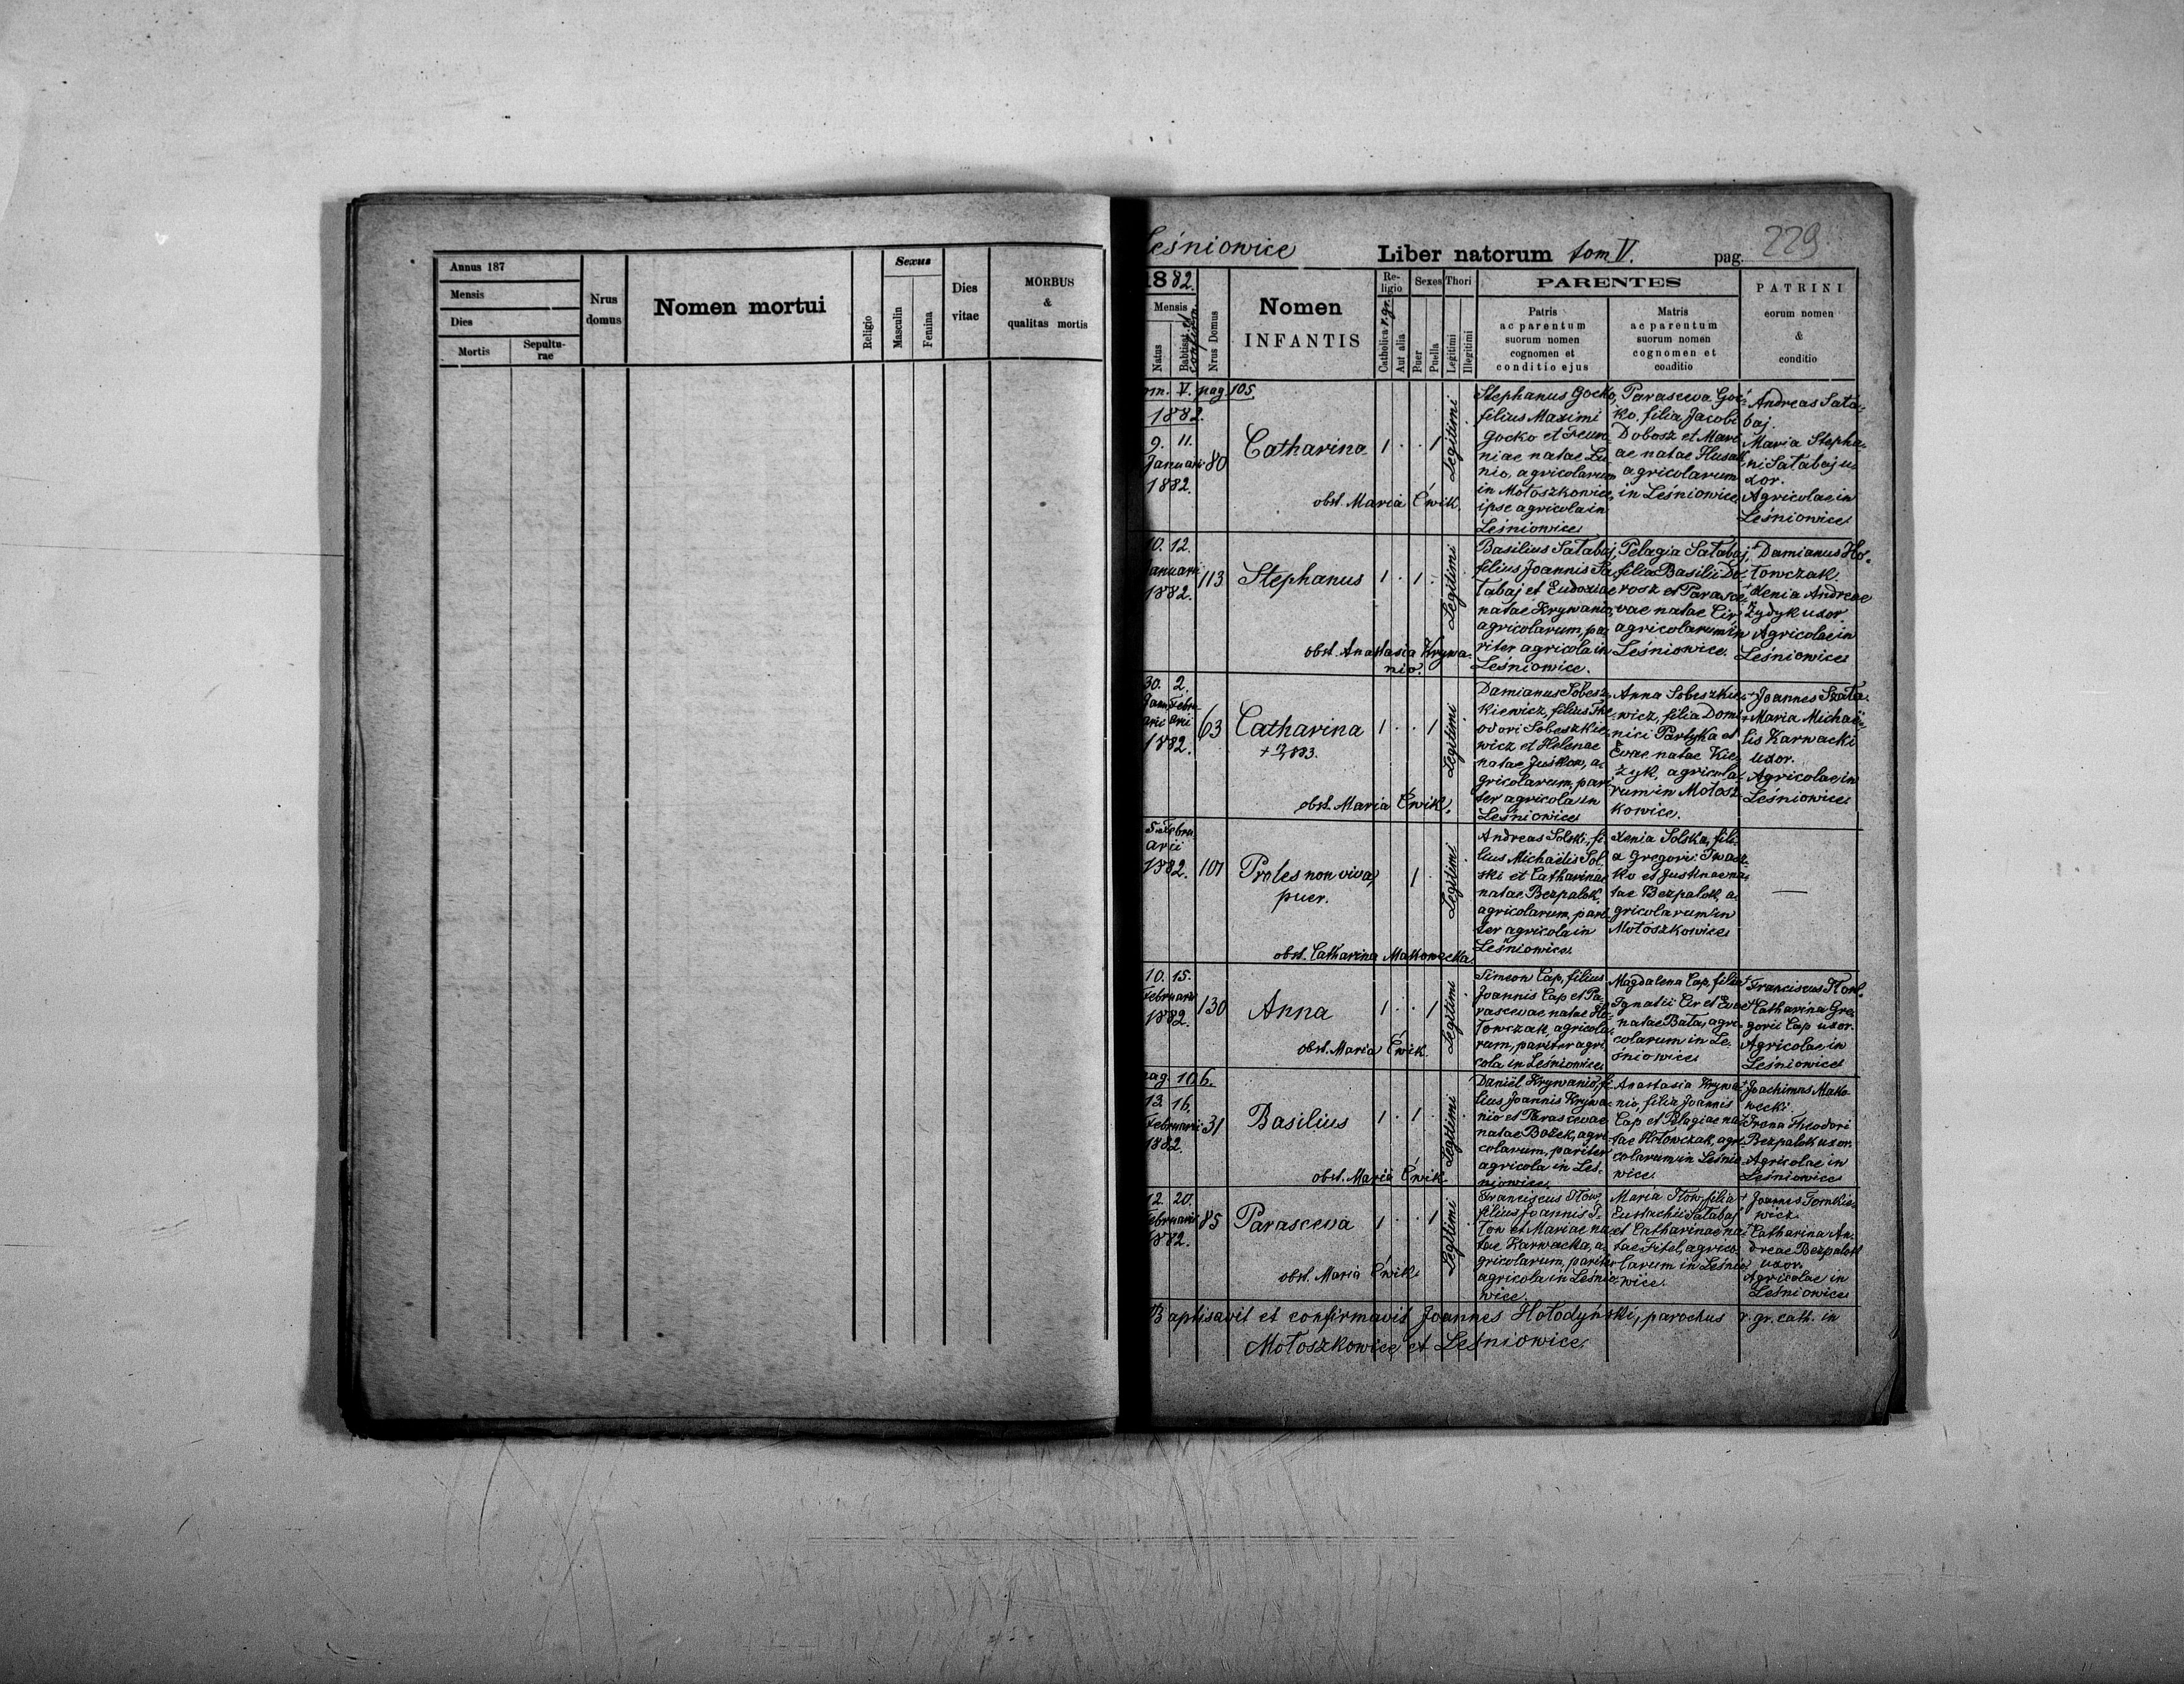 Annus 187
Mensis
Dies
Mortis
Sepultu-
rae
Nrus
domus
Nomen mortui
Religio
Sexus
Masculin
Femina
Dies
vitae
MORBUS
&
qualitas mortis
Leśniowice
Liber natorum tom V.
pag. 229
1882.
Mensis
Natus
Babtisat. et
confirm.
Nrus Domus
Nomen
INFANTIS
Re-
ligio
Catholica r. gr.
Aut alia
Sexes
Puer
Puella
Thori
Legitimi
Illegitimi
PARENTES
Patris
ac parentum
suorum nomen
cognomen et
conditio ejus
Matris
ac parentum
suorum nomen
cognomen et
conditio
PATRINI
eorum nomen
&
conditio
tom. V. pag. 105.
1882.
9. 11.
Januarii
1882.
80
Catharina
1 . . 1
Legitimi
obst. Maria Ćwik.
Stephanus Gocko,
filius Maximi
Gocko et Feum-
niae natae Lu-
nio, agricolarum
in Mołoszkowice,
ipse agricola in
Leśniowice
Parascewa Goc-
ko, filia Jacobi
Dobosz et Mari-
ae natae Husak
agricolarum
in Leśniowice
+ Andreas Sała-
baj.
Maria Stepha-
ni Sałabaj u-
xor.
Agricolae in
Leśniowice
10. 12.
Januarii
1882.
113
Stephanus
1 . 1 .
Legitimi
obst. Anastasia Krywa-
nio.
Basilius Sałabaj,
filius Joannis Sa-
łabaj et Eudoxiae
natae Krywanio,
agricolarum, pa-
riter agricola in
Leśniowice.
Pelagia Sałabaj,
filia Basilii Do-
rosz et Parasce-
vae natae Cir,
agricolarum in
Leśniowice.
+ Damianus Ho-
łowczak.
+ Xenia Andreae
Żydyk uxor.
Agricolae in
Leśniowice
30. 2.
Janu- Febru-
arii arii
1882.
63
Catharina
1 . . 1
Legitimi
obst. Maria Ćwik.
Damianus Sobesz-
kiewicz, filius The-
odori Sobeszkie-
wicz et Helenae
natae Juśkow, a-
gricolarum, pari-
ter agricola in
Leśniowice
Anna Sobeszkie-
wicz, filia Domi-
nici Partyka et
Evae natae Kie-
żyk, agricola-
rum in Mołosz-
kowice.
+ Joannes Szała.
+ Maria Michaë-
lis Karwacki
uxor.
Agricolae in
Leśniowice
5. Febru-
arii
1882.
101
Proles non viva,
puer.
1 .
Legitimi
obst. Catharina Makowecka.
Andreas Solski, fi-
lius Michaëlis Sol-
ski et Catharinae
natae Bezpalok,
agricolarum, pari-
ter agricola in
Leśniowice.
Xenia Solska, fili-
a Gregorii Iwasz-
ko et Justinae na-
tae Bezpalok, a-
gricolarum in
Mołoszkowice
—
10. 15.
Februarii
1882.
130
Anna
1 . . 1
Legitimi
obst. Maria Ćwik.
Simeon Cap, filius
Joannis Cap et Pa-
rascevae natae Ho-
łowczak, agricola-
rum, pariter agri-
cola in Leśniowice
Magdalena Cap, filia
Ignatii Cir et Evae
natae Bała, agri-
colarum in Le-
śniowice
+ Catharina Gre-
gorii Cap uxor.
Agricolae in
Leśniowice
pag. 106.
13. 16.
Februarii
1882.
31
Basilius
1 . 1 .
Legitimi
obst. Maria Ćwik
Daniël Krywanio, fi-
lius Joannis Krywa-
nio et Parascevae
natae Bożek, agri-
colarum, pariter
agricola in Leś-
niowice.
Anastasia Krywa-
nio, filia Joannis
Cap et Pelagiae na-
tae Hołowczak, agri-
colarum in Leśnio-
wice.
+ Joachimus Mako-
wecki.
+ Irena Theodori
Bezpalok uxor.
Agricolae in
Leśniowice
12. 20.
Februarii
1882.
85
Parasceva
1 . . 1
Legitimi
obst. Maria Ćwik
Franciscus Tłow,
filius Joannis T-
łow et Mariae na-
tae Karwacka, a-
gricolarum, pariter
agricola in Leśnio-
wice.
Maria Tłow, filia
Eustachii Sałabaj
et Catharinae na-
tae Fitel, agrico-
larum in Leśnio-
wice.
+ Joannes Tomkie-
wicz.
+ Catharina An-
dreae Bezpalok
uxor.
Agricolae in
Leśniowice
Baptisavit et confirmavit Joannes Hołodyński, parochus r. gr. cath. in
Mołoszkowice et Leśniowice.